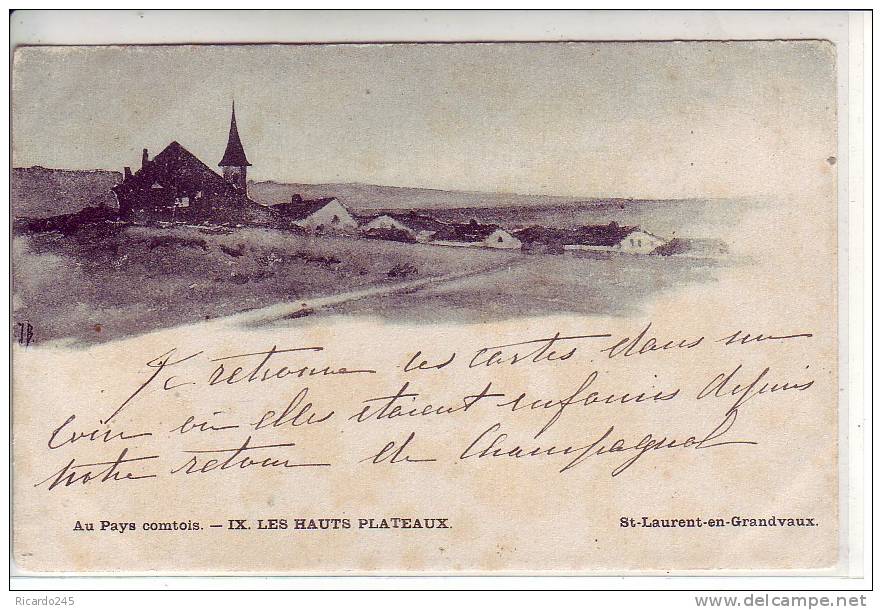 JB
Je retrouve ces cartes dans un
coin où elles étaient enfouies depuis
notre retour de Champagnol
Au Pays comtois. — IX. LES HAUTS PLATEAUX. St-Laurent-en-Grandvaux.
Ricardo245
www.delcampe.net